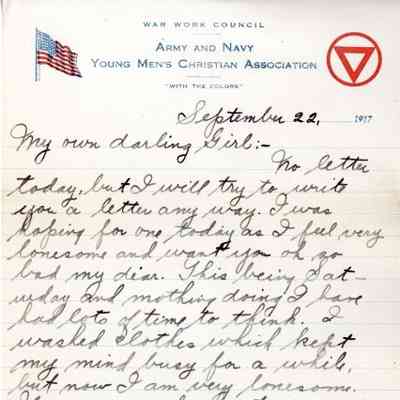 WAR WORK COUNCIL
ARMY AND NAVY
YOUNG MEN'S CHRISTIAN ASSOCIATION
"WITH THE COLORS"
September 22, 1917
My own darling Girl:-
No letter
today, but I will try to write
you a letter any way. I was
hoping for one today as I feel very
lonesome and want you oh so
bad my dear. This being Sat-
urday and nothing doing I have
had lots of time to think. I
washed clothes which kept
my mind busy for a while,
but now I am very lonesome.